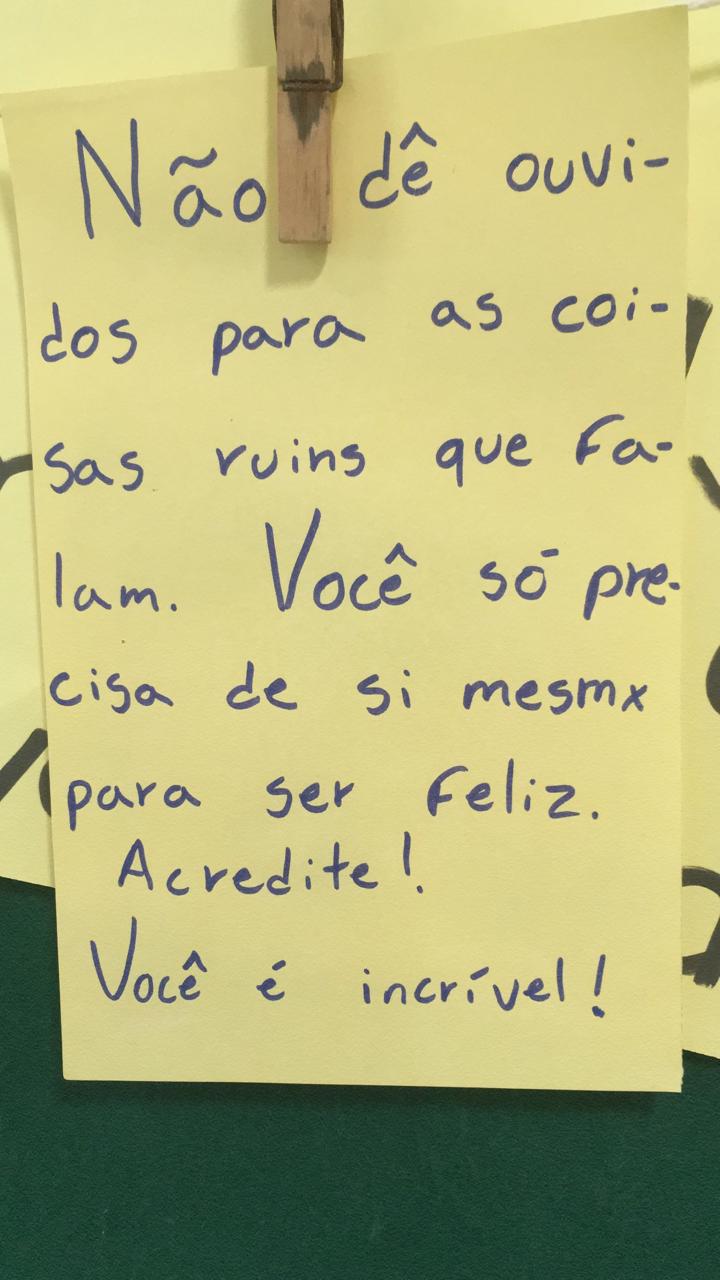 Não dê ouvi-
dos para as coi-
sas ruins que fa-
lam. Você só pre-
cisa de si mesmx
para ser feliz.
Acredite!
Você é incrível!